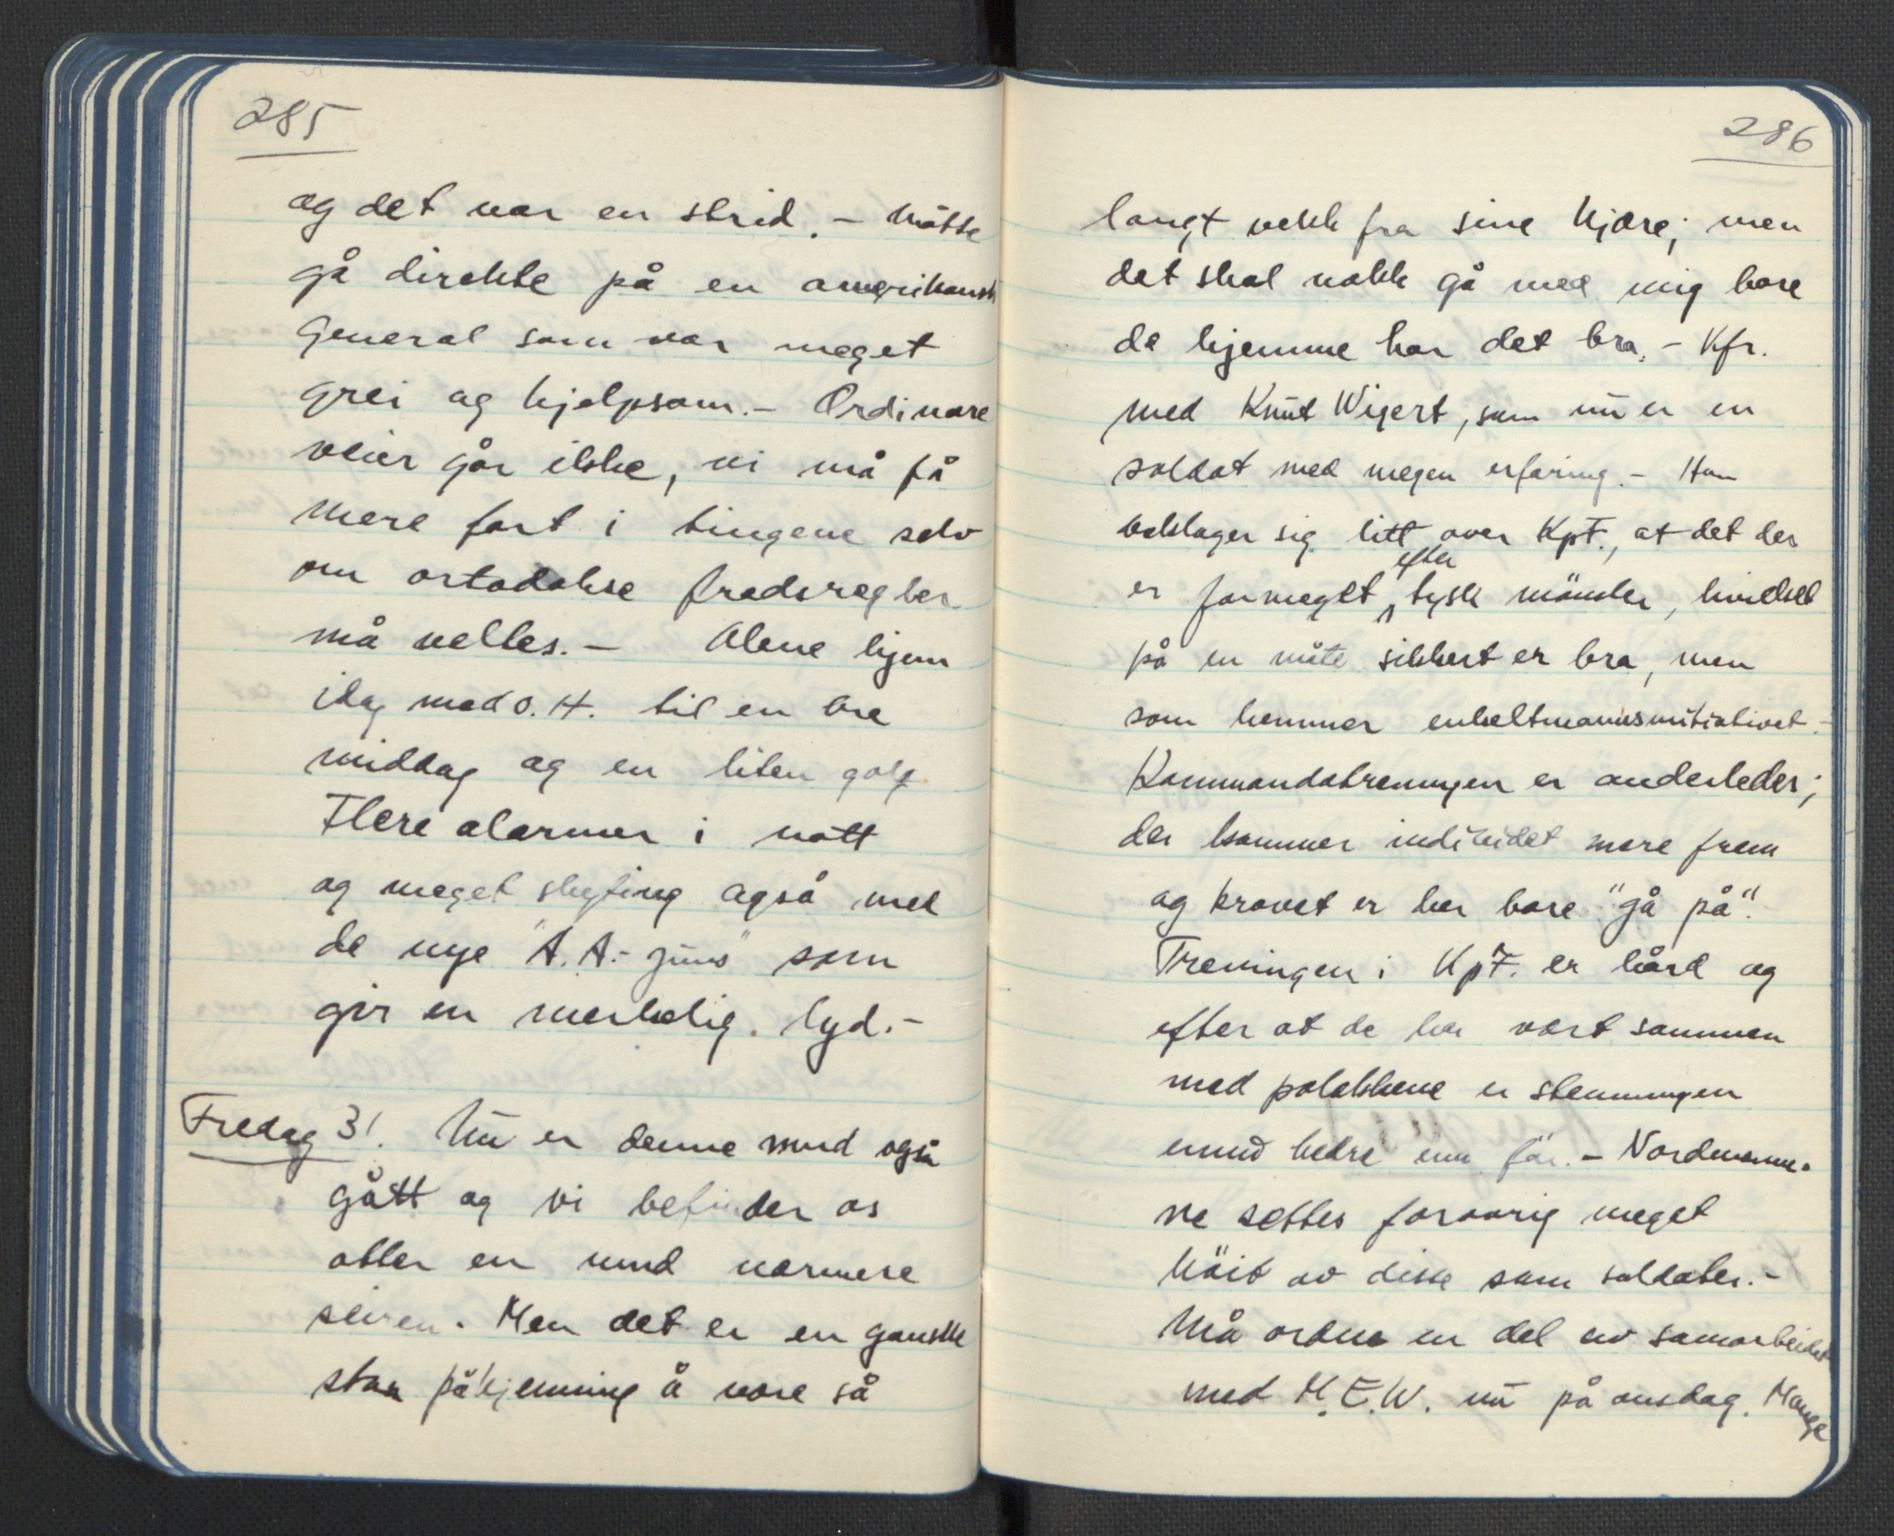 285
og det var en strid. – Måtte
gå direkte på en amerikansk
General som var meget
grei og hjelpsom. – Ordinære
veier går ikke, vi må få
mere fart i tingene selv
om ortodokse fredsregler
må veltes. – Alene hjem
idag med O.H. til en bra
middag og en liten golf
Flere alarmer i natt
og meget skyting også med
de nye "A.A.-guns" som
gir en merkelig lyd. –
Fredag 31. Nu er denne mnd også
gått og vi befinder os
atter en mnd nærmere
seiren. Men det er en ganske
stor påkjenning å være så
286
langt vekk fra sine kjære; men
det skal nokk gå med mig bare
de hjemme har det bra. – Kfr.
med Knut Wigert, som nu er en
soldat med megen erfaring. – Han
beklager sig litt over KpT., at det der
er formeget efter tysk mönster, hvilket
på en måte sikkert er bra, men
som hemmer enkeltmannsinitiativet. –
Kommandotreningen er anderledes;
der kommer individet mere frem
og kravet er her bare "gå på".
Treningen i KpT. er hård og
efter at de har vært sammen
med polakkene er stemningen
ennu bedre enn før. – Nordmenne-
ne settes forøvrig meget
höit av disse som soldater. –
Må ordne en del av samarbeidet
med M.E.W. nu på onsdag. Mange